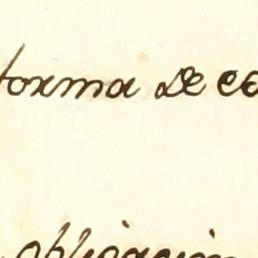 forma de co
obligación